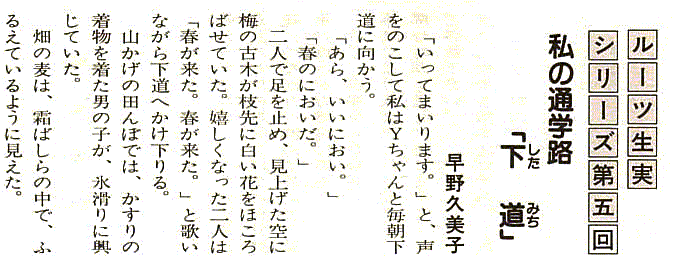 ルーツ生実
シリーズ第五回
私の通学路
「下道」
した みち
早野久美子
「いってまいります。」と、声
をのこして私はＹちゃんと毎朝下
道に向かう。
「あら、いいにおい。」
「春のにおいだ。」
二人で足を止め、見上げた空に
梅の古木が枝先に白い花をほころ
ばせていた。嬉しくなった二人は
「春が来た。春が来た。」と歌い
ながら下道へかけ下りる。
山かげの田んぼでは、かすりの
着物を着た男の子が、氷滑りに興
じていた。
畑の麦は、霜ばしらの中で、ふ
るえているように見えた。